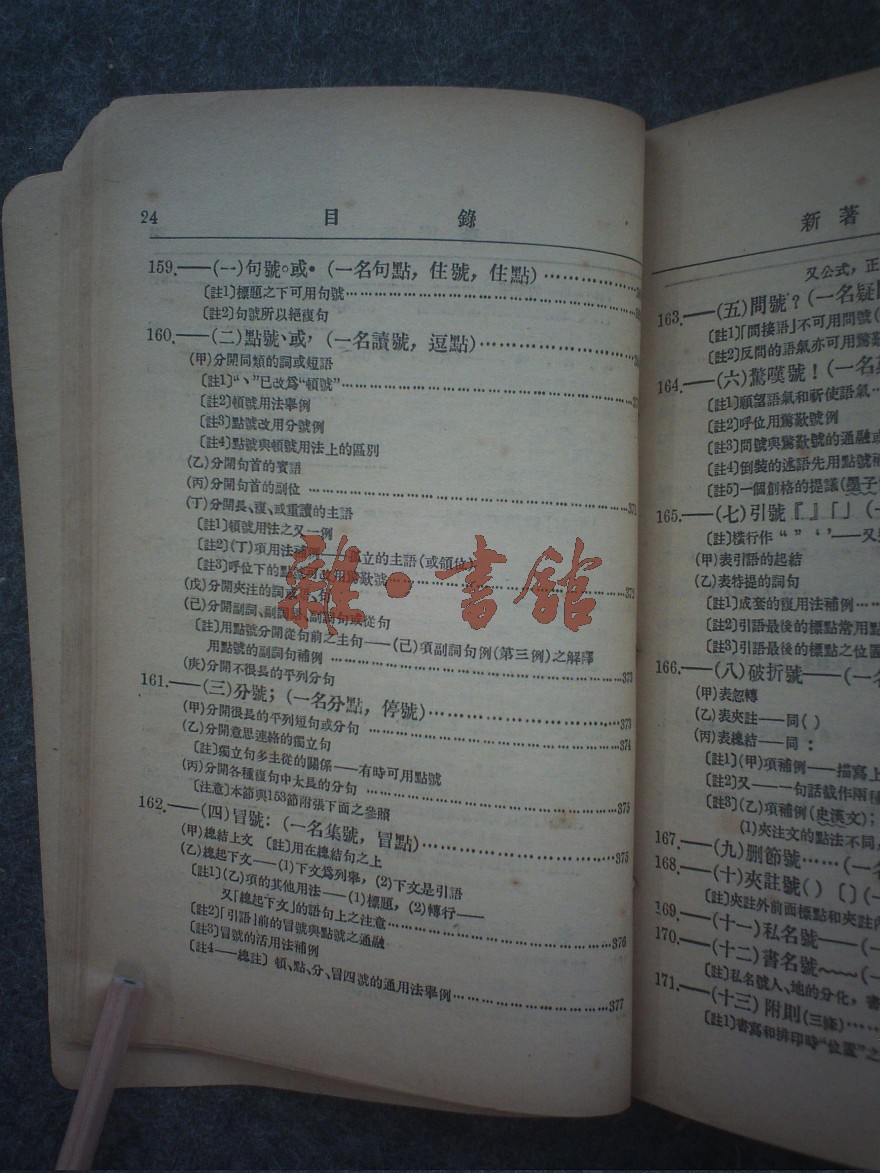 24 目 錄
159.——(一)句號○或•(一名句點，住號，住點)………………
〔註1〕標題之下可用句號………………
〔註2〕句號所以絕復句
160.——(二)點號、或，(一名讀號，逗點)………………
(甲)分開同類的詞或短語
〔註1〕“、”已改爲“頓號”………………
〔註2〕頓號用法舉例
〔註3〕點號改用分號例
〔註4〕點號與頓號用法上的區別
(乙)分開句首的賓語
(丙)分開句首的副位………………371
(丁)分開長、複、或重讀的主語
〔註1〕頓號用法之又一例
〔註2〕(丁)項用法 ——孤立的主語(或領位)
〔註3〕呼位下的點號可改用驚歎號………………372
(戊)分開夾注的詞或 句
(己)分開副詞、副 、副詞句或從句
〔註〕用點號分開從句前之主句——(己)項副詞句例(第三例)之解釋
用點號的副詞句補例………………373
(庚)分開不很長的平列分句
161.——(三)分號；(一名分點，停號)………………373
(甲)分開很長的平列短句或分句………………374
(乙)分開意思連絡的獨立句
〔註〕獨立句多主從的關係——有時可用點號
(丙)分開各種復句中太長的分句………………375
〔注意〕本節與153節附張下面之參照
162.——(四)冒號：(一名集號，冒點)………………375
(甲)總結上文 〔註〕用在總結句之上
(乙)總起下文——(1)下文爲列舉，(2)下文是引語
〔註1〕(乙)項的其他用法——(1)標題，(2)轉行——
又「總起下文」的語句上之注意………………376
〔註2〕「引語」前的冒號與點號之通融
〔註3〕冒號的活用法補例
〔註4——總註〕頓、點、分、冒四號的通用法舉例………………377
雜·書館
新著
又公式，正
163.——(五)問號？(一名疑
〔註1〕「間接語」不可用問號(
〔註2〕反問的語氣亦可用驚
164.——(六)驚嘆號！(一名
〔註1〕願望語氣和祈使語氣…
〔註2〕呼位用驚歎號例
〔註3〕問號與驚歎號的通融或
〔註4〕倒裝的述語先用點號補
〔註5〕一個創格的提議(墨子
165.——(七)引號『』「」(一
〔註〕橫行作“ ” ‘ ’——又
(甲)表引語的起結
(乙)表特提的詞句
〔註1〕成套的復用法補例…
〔註2〕引語最後的標點常用點
〔註3〕引語最後的標點之位置
166.——(八)破折號——(一名
(甲)表忽轉
(乙)表夾註——同( )
(丙)表總結——同：
〔註1〕(甲)項補例——描寫上
〔註2〕又——一句話截作兩種
〔註3〕(乙)項補例(史漢文)；
(1)夾注文的點法不同，
167.——(九)刪節號……(一名
168.——(十)夾註號( )〔 〕(一
〔註〕夾註外前面標點和夾註內
169.——(十一)私名號——(一
170.——(十二)書名號~~~~(一
〔註〕私名號人、地的分化，書
171.——(十三)附則(三條)……
〔註1〕書寫和排印時“位置”之